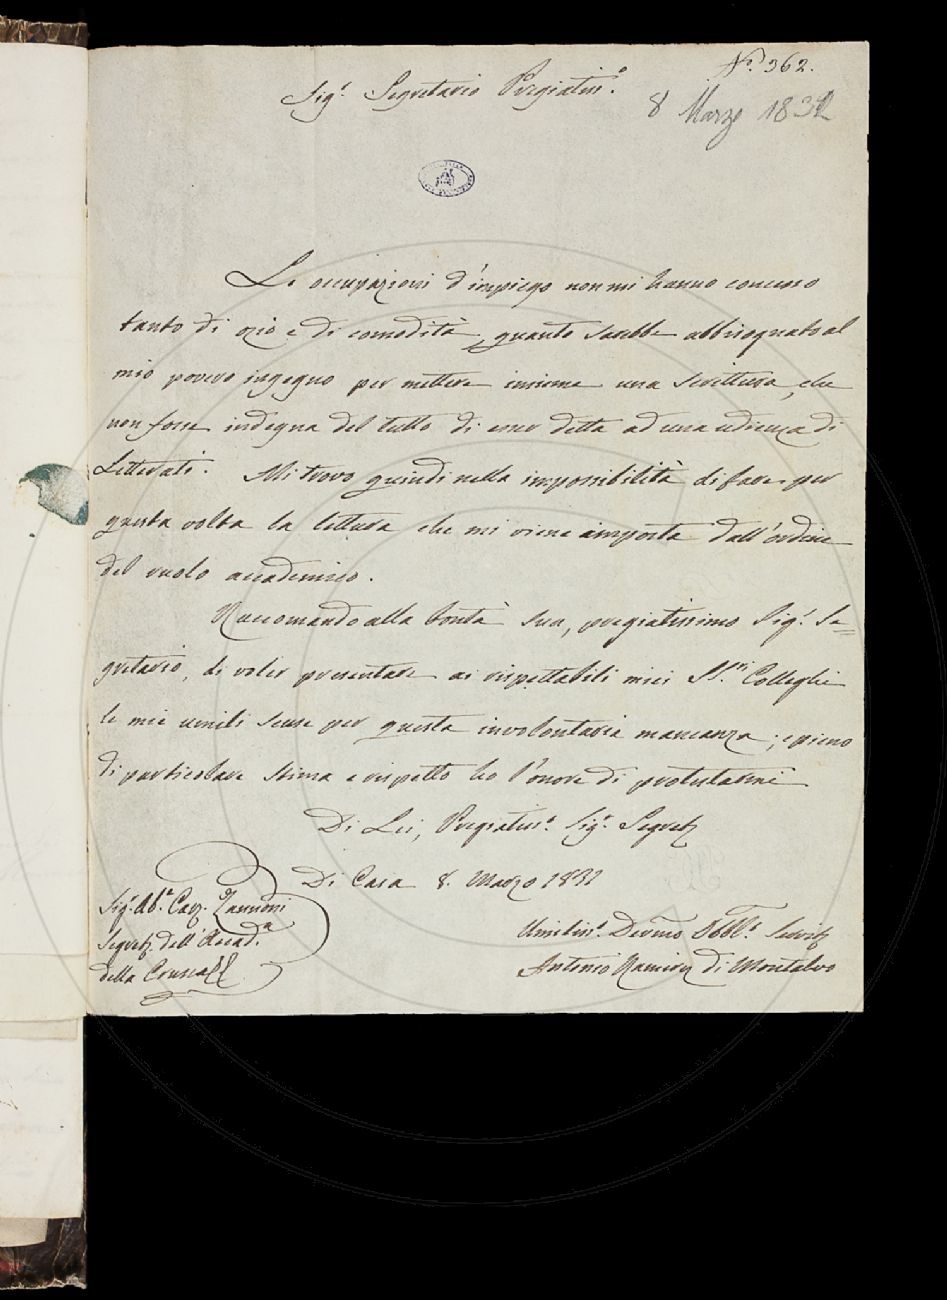 N.° 362.
Sig.r Segretario Pregiatis.o
8 Marzo 1832
Le occupazioni d'impiego non mi hanno concesso
tanto di ozio e di comodità, quanto sarebbe abbisognato al
mio povero ingegno per mettere insieme una scrittura, che
non fosse indegna del tutto di esser detta ad una udienza di
Letterati. Mi trovo quindi nella impossibilità di fare per
questa volta la lettura che mi viene imposta dall'ordine
del ruolo accademico.
Raccomando alla bontà sua, pregiatissimo Sig.r Se=
gretario, di voler presentare ai rispettabili miei SS.ri Colleghi
le mie umili scuse per questa involontaria mancanza; e pieno
di particolare stima e rispetto ho l'onore di protestarmi
Di Lei, Pregiatis.o Sig.r Segret.
Di Casa 8. Marzo 1832
Sig.r Ab.e Cav. Zannoni
Segret. dell'Accad.a
della Crusca
Umilis.o Devmo Obbl.o Servit.
Antonio Ramirez di Montalvo